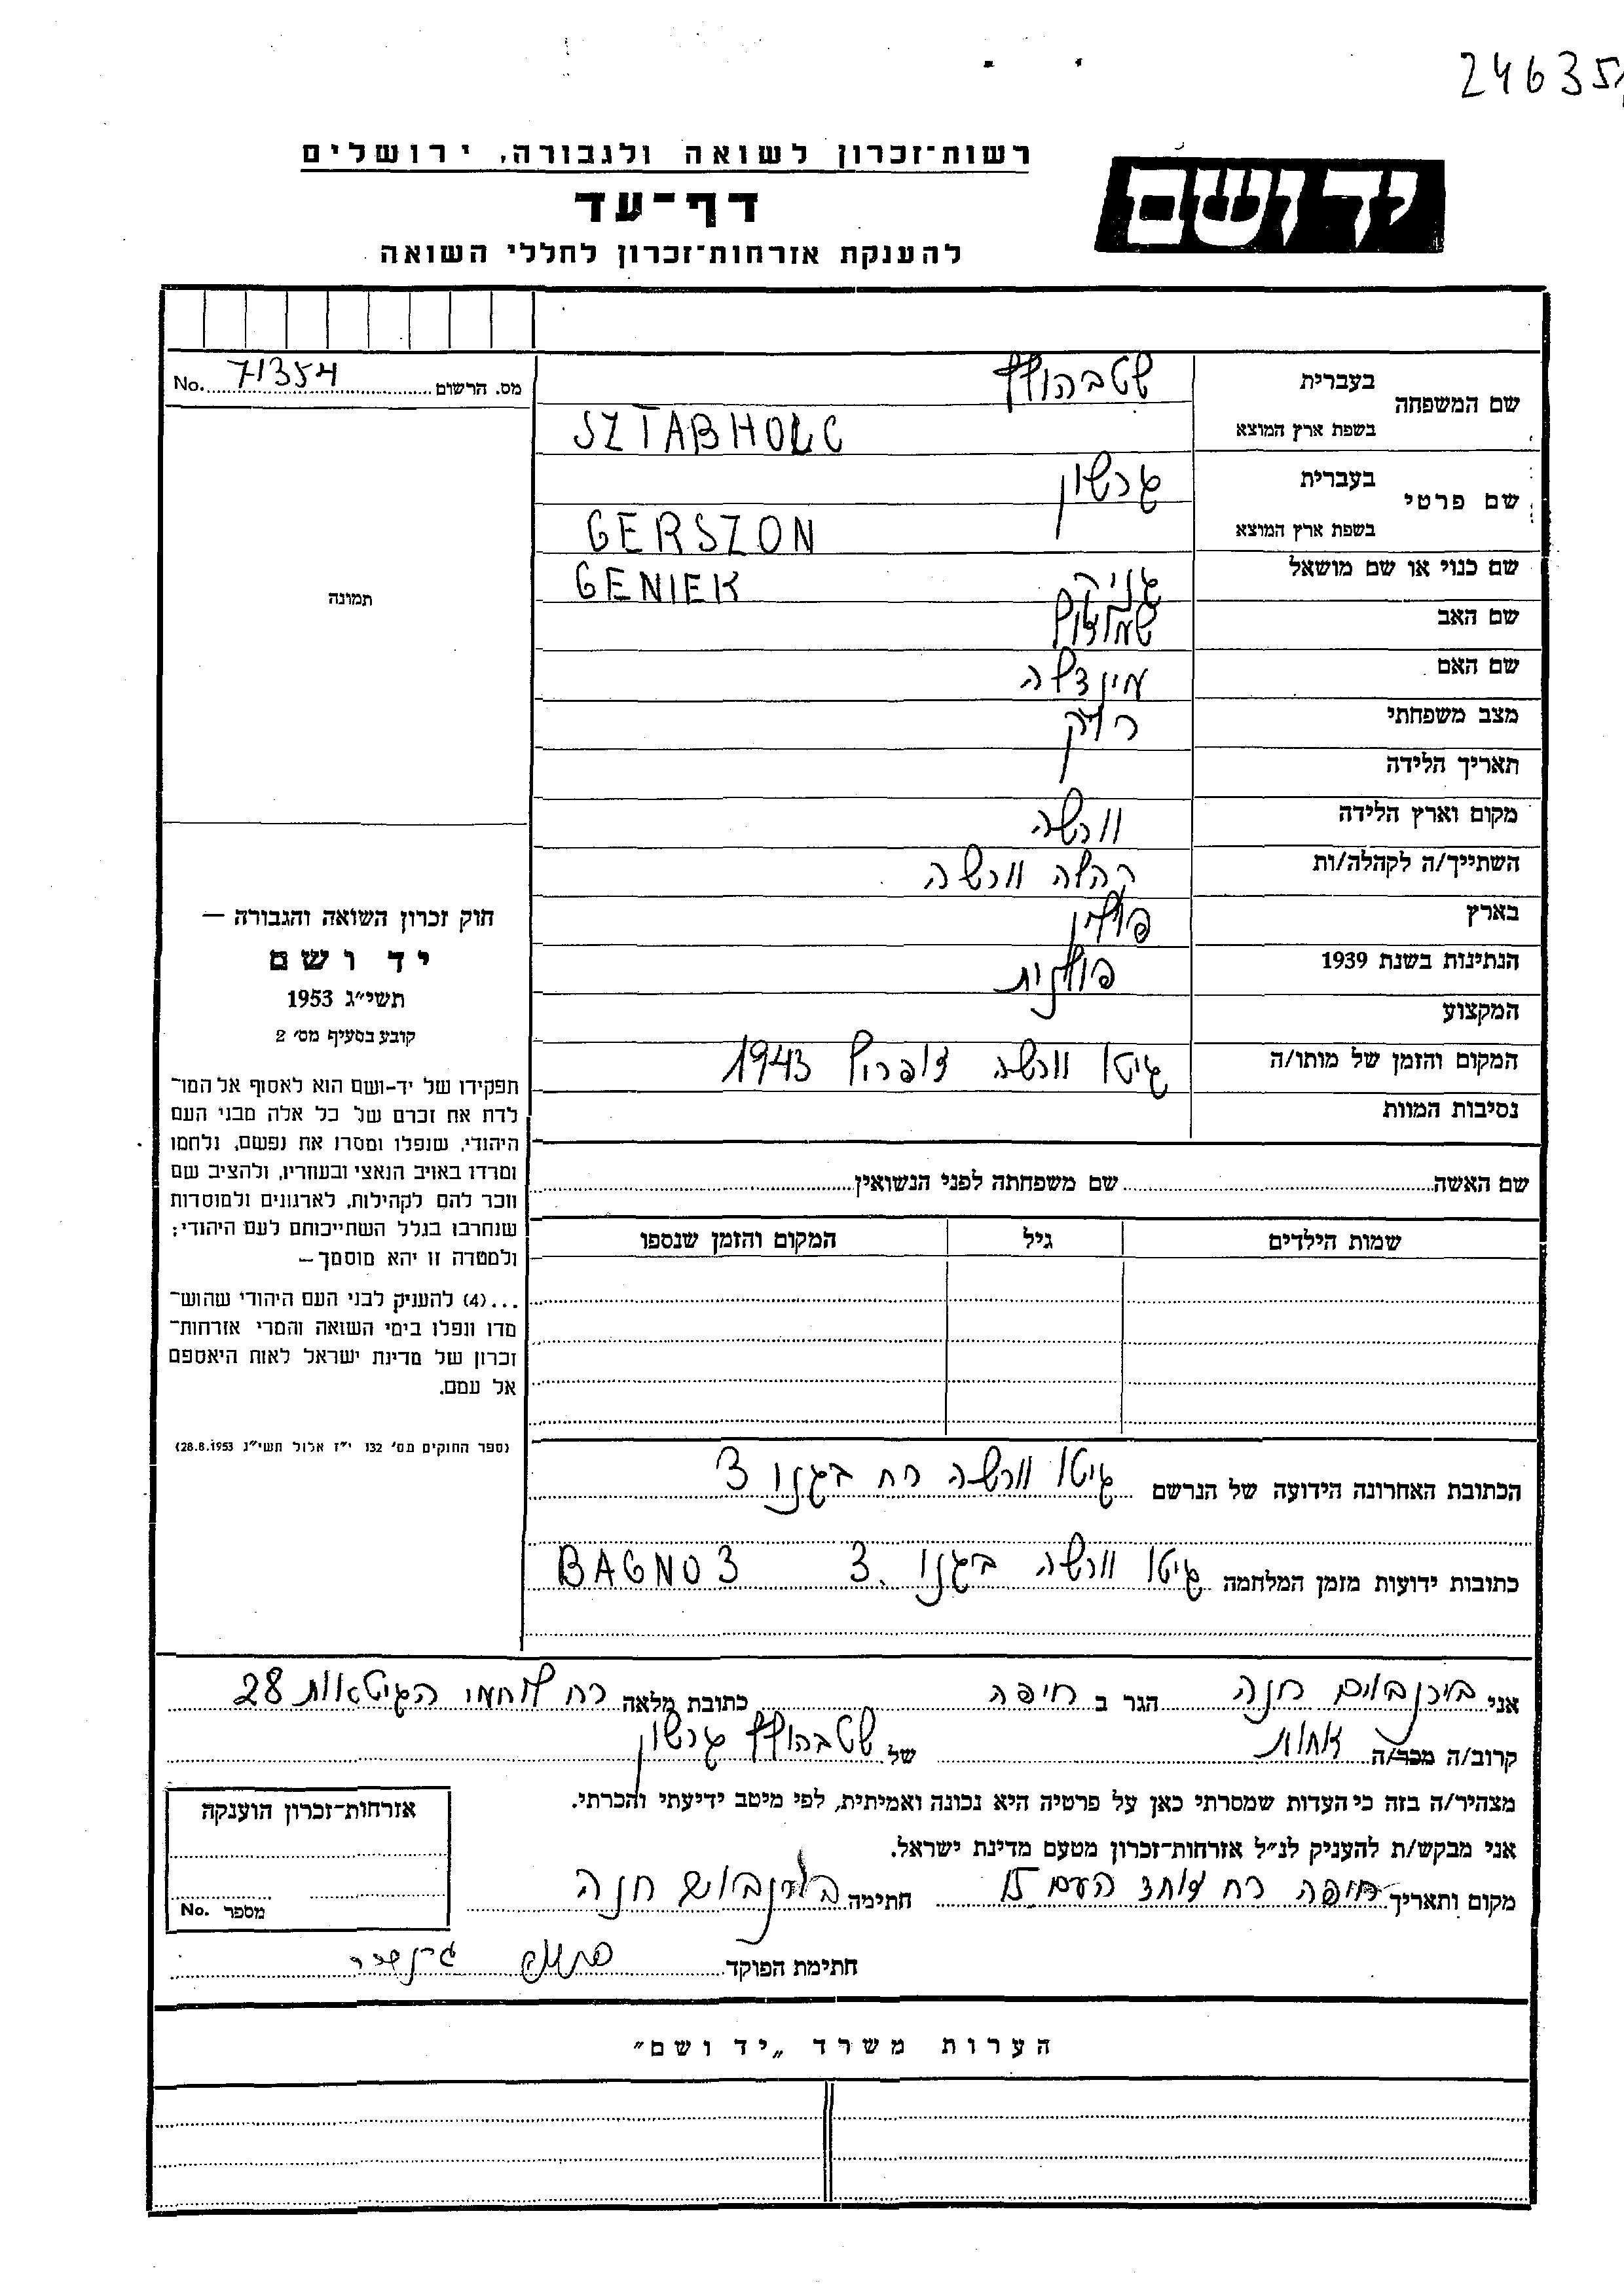 24635
רשות־זכרון לשואה ולגבורה, ירושלים
יד ושם
דף־עד
להענקת אזרחות־זכרון לחללי השואה
מס. הרשום 71354 No.
שם המשפחה
בעברית שטבהולץ
בשפת ארץ המוצא SZTABHOLC
שם פרטי
בעברית גרשון
בשפת ארץ המוצא GERSZON
שם כנוי או שם מושאל גניק GENIEK
שם האב
שם האם מינדלה
מצב משפחתי רווק
תאריך הלידה
מקום וארץ הלידה וורשה
השתייך/ה לקהלה/ות קהלה וורשה
בארץ פולין
הנתינות בשנת 1939 פולנית
המקצוע
המקום והזמן של מותו/ה גיטו וורשה אפריל 1943
נסיבות המוות
תמונה
חוק זכרון השואה והגבורה —
יד ושם
תשי״ג 1953
קובע בסעיף מס׳ 2
תפקידו של יד-ושם הוא לאסוף אל המו־
לדת את זכרם של כל אלה מבני העם
היהודי, שנפלו ומסרו את נפשם, נלחמו
ומרדו באויב הנאצי ובעוזריו, ולהציב שם
וזכר להם לקהילות, לארגונים ולמוסדות
שנחרבו בגלל השתייכותם לעם היהודי;
ולמטרה זו יהא מוסמך —
...(4) להעניק לבני העם היהודי שהוש־
מדו ונפלו בימי השואה והמרי אזרחות־
זכרון של מדינת ישראל לאות היאספם
אל עמם.
(ספר החוקים מס׳ 132 י״ז אלול תשי״ג 28.8.1953)
שם האשה שם משפחתה לפני הנשואין
שמות הילדים גיל המקום והזמן שנספו
הכתובת האחרונה הידועה של הנרשם גיטו וורשה רח בגנו 3
כתובות ידועות מזמן המלחמה גיטו וורשה בגנו 3. BAGNO 3
אני בירנבוים חנה הגר ב חיפה כתובת מלאה רח לוחמי הגיטאות 28
קרוב/ה מכר/ה אחות של שטבהולץ גרשון
מצהיר/ה בזה כי העדות שמסרתי כאן על פרטיה היא נכונה ואמיתית, לפי מיטב ידיעתי והכרתי.
אני מבקש/ת להעניק לנ״ל אזרחות־זכרון מטעם מדינת ישראל.
מקום ותאריך חיפה רח אחד העם 15 חתימה בירנבוים חנה
חתימת הפוקד
אזרחות־זכרון הוענקה
מספר No.
הערות משרד „יד ושם״